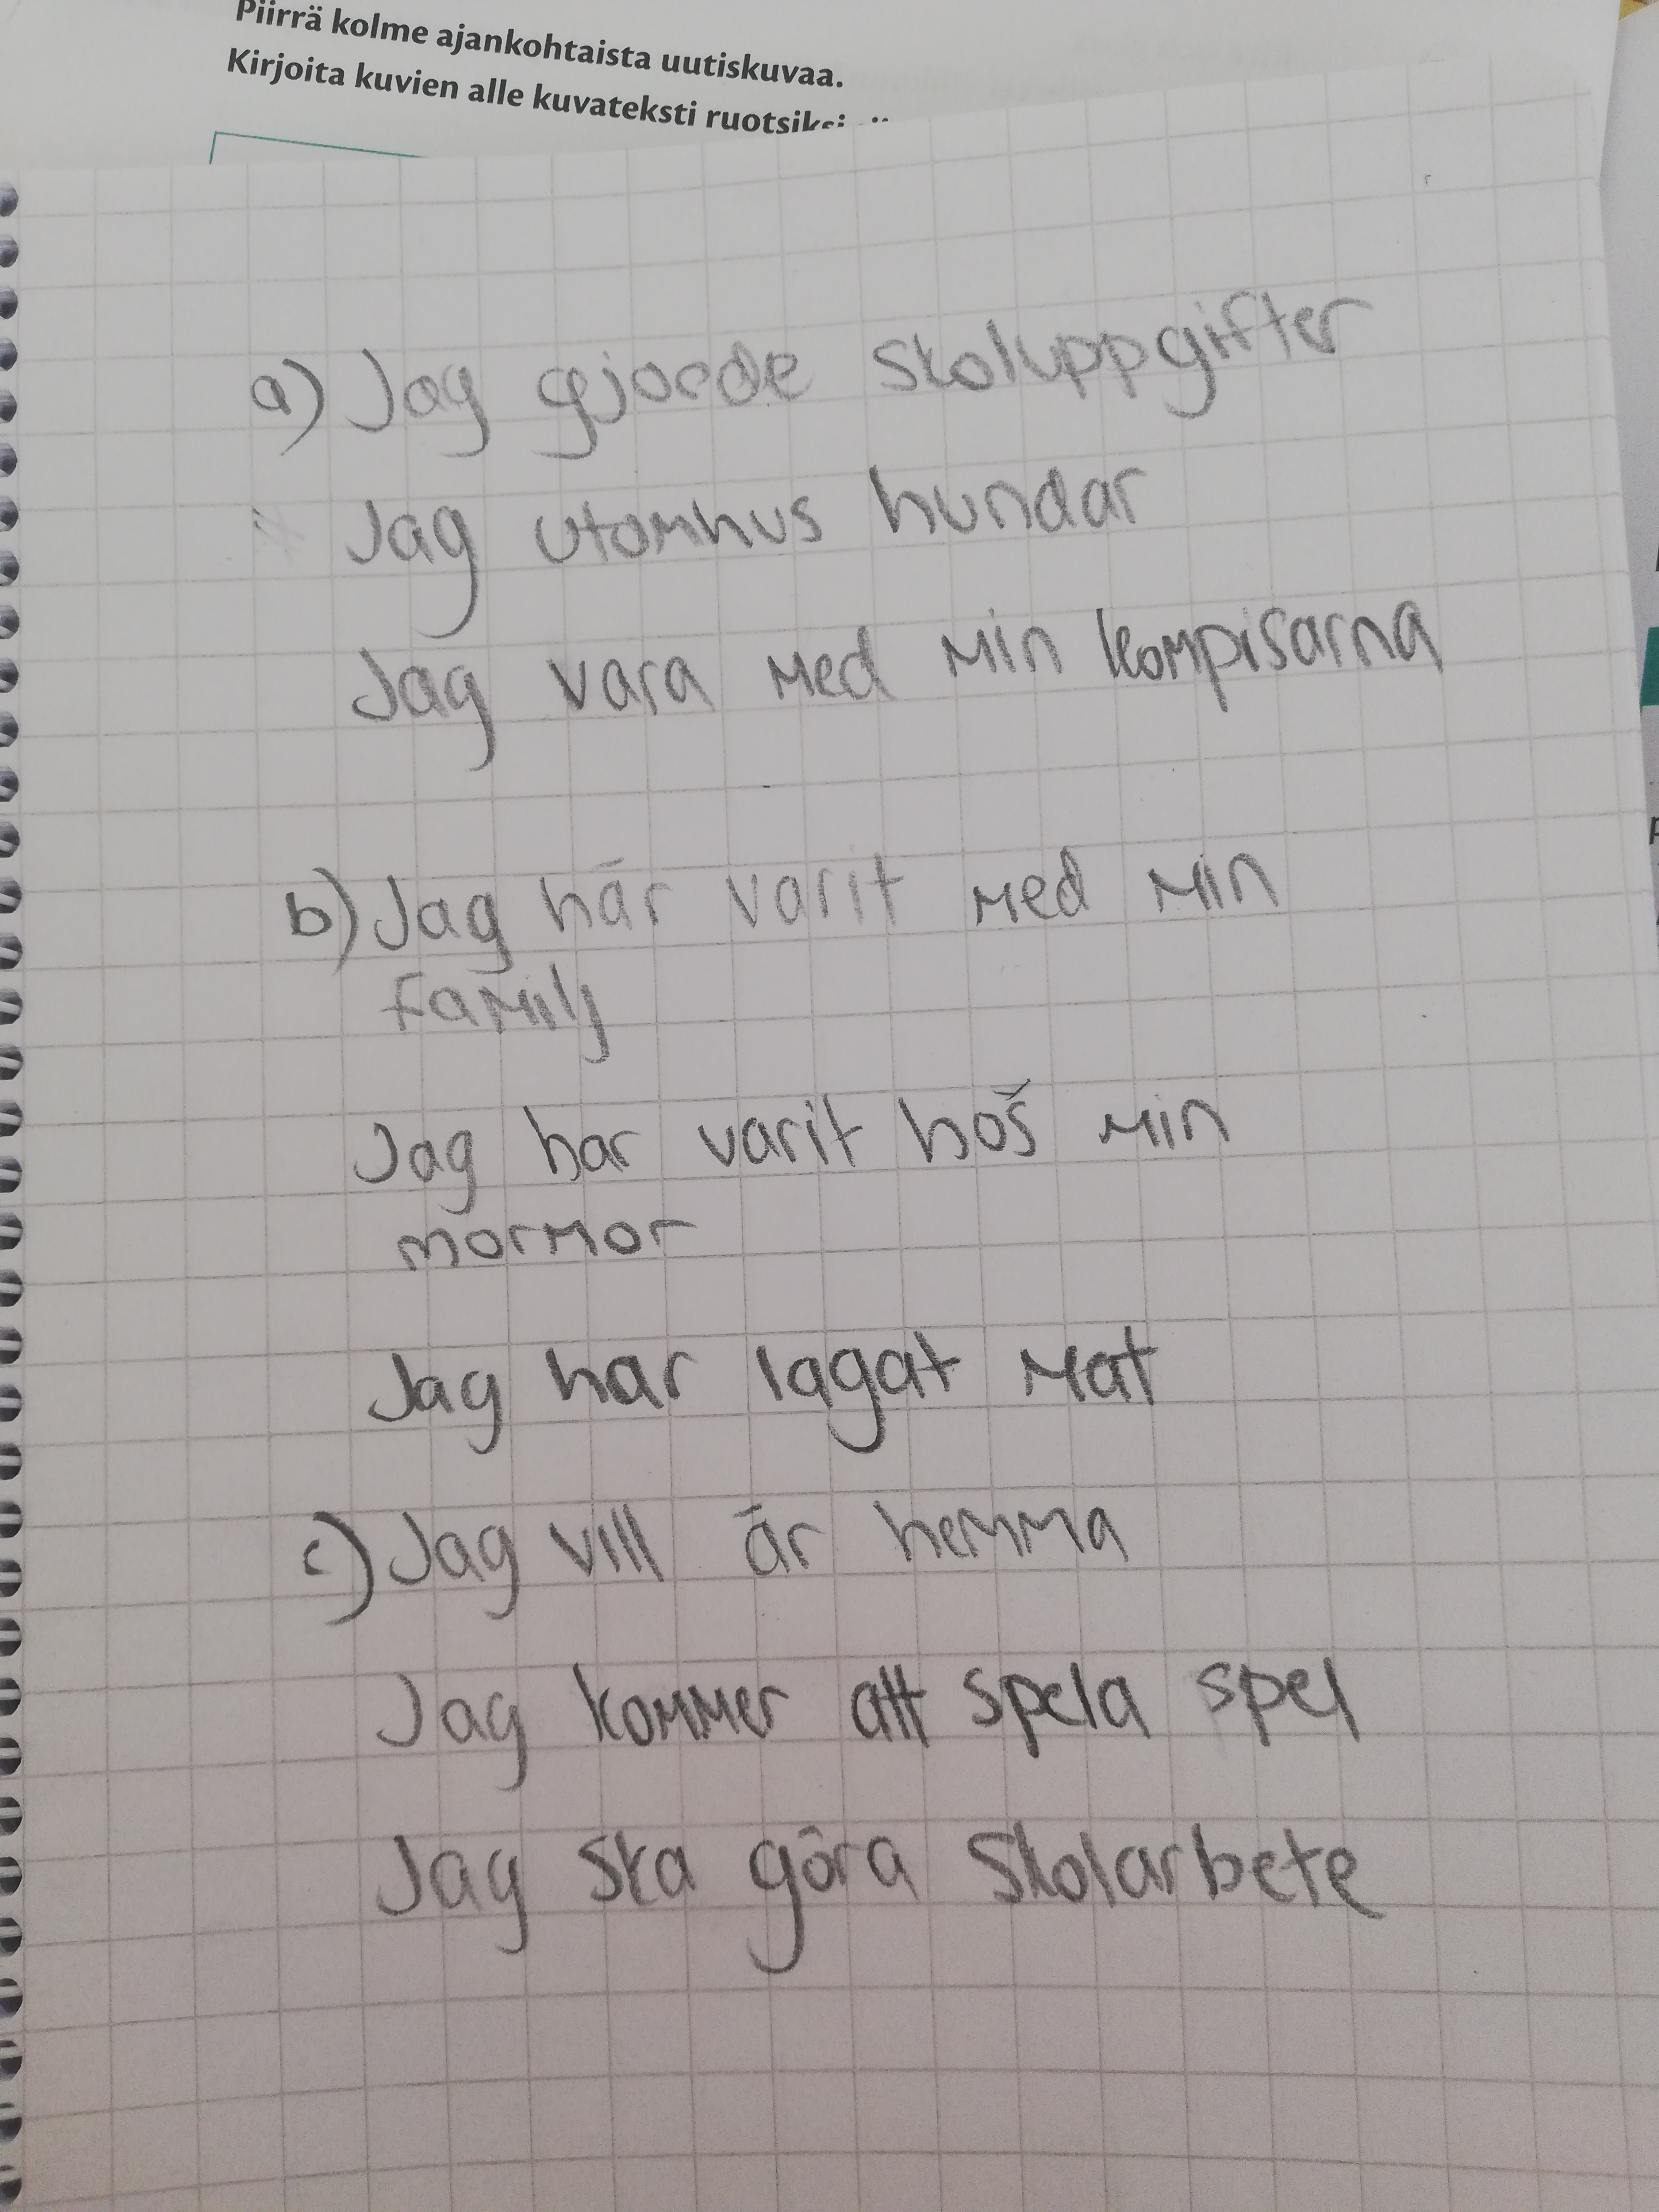 Piirrä kolme ajankohtaista uutiskuvaa.
Kirjoita kuvien alle kuvateksti ruotsiksi
a) Jag gjorde skoluppgifter
Jag utomhus hundar
Jag vara med min kompisarna
b) Jag här varit med min
familj
Jag har varit hoš min
mormor
Jag har lagat mat
c) Jag vill är hemma
Jag kommer att spela spel
Jag ska göra skolarbete